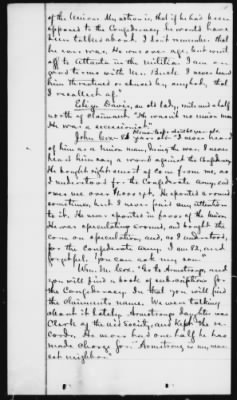 of the Union. My notion is, that if he had been
opposed to the Confederacy he would have
been talked about. I dont remember that
he ever was. He was over age, but went
off to Atlanta in the militia. I am on
good terms with Mr. Buck. I never heard
him threatened or abused by anybody, that
I recollect of."
Edgy Davis, an old lady, mile and a half
north of claimant. "He wasn't no union man.
He was a secessionist."
John Cox. 82 years old. "I never heard
of him as a Union man, during the war. I never
heard him say a word against the Confederacy.
He bought right smart of corn from me, as
I understood for the Confederate Army, and
owes me over it yet. He spouted around
sometimes, but I never paid any attention
to it. He never spouted in favor of the Union.
He was speculating around, and bought the
corn on speculation, and, as I understood,
for the Confederate Army. I am 82, and
forgetful. You can ask my son."
Wm. N. Cox. "Go to Armstrong, and
you will find a book of subscriptions for
the Confederacy. In that you will find
the Claimants name. We were talking
about it lately. Armstrongs daughter was
Clerk of the aid Society, and kept the re-
cords. He never had one half he has
made charge for. "Armstrong is my near-
est neighbor."